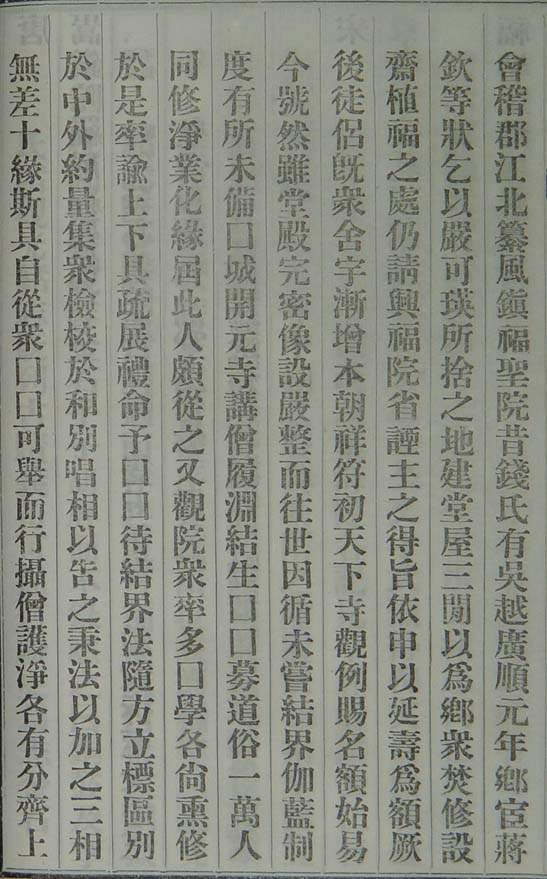 會稽郡江北纂風鎮福聖院昔錢氏有吳越廣順元年鄉官蔣
欽等狀乞以嚴可瑛所捨之地建堂屋三閒以爲鄉衆焚修設
齋植福之處仍請興福院省諲主之得旨依申以延壽爲額厥
後徒侶旣衆舍宇漸增本朝祥符初天下寺觀例賜名額始易
今號然雖堂殿完密像設嚴整而往世因循未嘗結界伽藍制
度有所未備囗城開元寺講僧履淵結生囗囗募道俗一萬人
同修淨業化緣屆此人頗從之又觀院衆率多囗學各尙熏修
於是率諭上下具疏展禮命予囗囗待結界法隨方立標區別
於中外約量集衆檢校於和別唱相以告之秉法以加之三相
無差十緣斯具自從衆囗囗可舉而行攝僧護淨各有分齊上